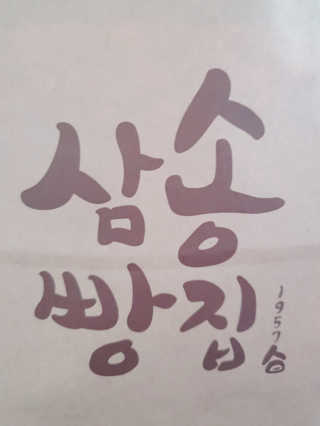 삼송
빵집
1957
송